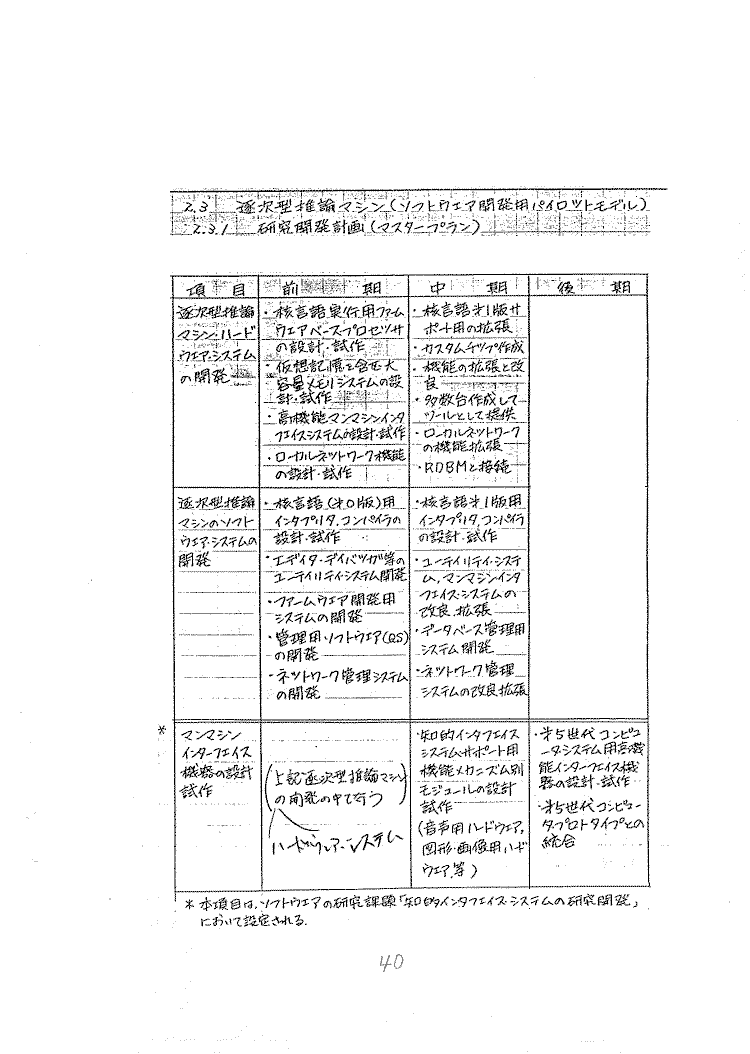 2.3 逐次型推論マシン(ソフトウエア開発用パイロットモデル)
2.3.1 研究開発計画(マスタープラン)
項 目
前 期
中 期
後 期
逐次型推論
マシン・ハード
ウエア・システム
の開発
・核言語実行用ファーム
ウエアベースプロセッサ
の設計・試作
・仮想記憶を含む大
容量メモリシステムの設
計・試作
・高機能マンマシンインタ
フェイスシステムの設計・試作
・ローカルネットワーク機能
の設計・試作
・核言語オ1版サ
ポート用の拡張
・カスタムチップ作成
・機能の拡張と改
良
・多数台作成して
ツールとして提供
・ローカルネットワーク
の機能拡張
・RDBMと接続
逐次型推論
マシンのソフト
ウエア・システムの
開発
・核言語(オ0版)用
インタプリタ、コンパイラの
設計・試作
・エディタ・デイバッガ等の
ユーティリティ・システム開発
・ファームウエア開発用
システムの開発
・管理用・ソフトウエア(OS)
の開発
・ネットワーク管理システム
の開発
・核言語オ1版用
インタプリタ、コンパイラ
の設計・試作
・ユーティリティ・システ
ム、マンマシンインタ
フェイス・システムの
改良、拡張
・データベース管理用
システム開発
・ネットワーク管理
システムの改良拡張
*
マンマシン
インターフェイス
機器の設計
試作
(上記逐次型推論マシン
の開発の中で行う)
ハードウェア・システム
・知的インタフェイス
システムサポート用
機能メカニズム別
モジュールの設計
試作
(音声用ハードウエア、
図形・画像用ハード
ウエア、等)
・オ5世代コンピュ
ータシステム用高機
能インターフェイス機
器の設計・試作
・オ5世代コンピュー
タプロトタイプとの
統合
*本項目は、ソフトウエアの研究課題「知的インタフェイス・システムの研究開発」
において設定される.
40